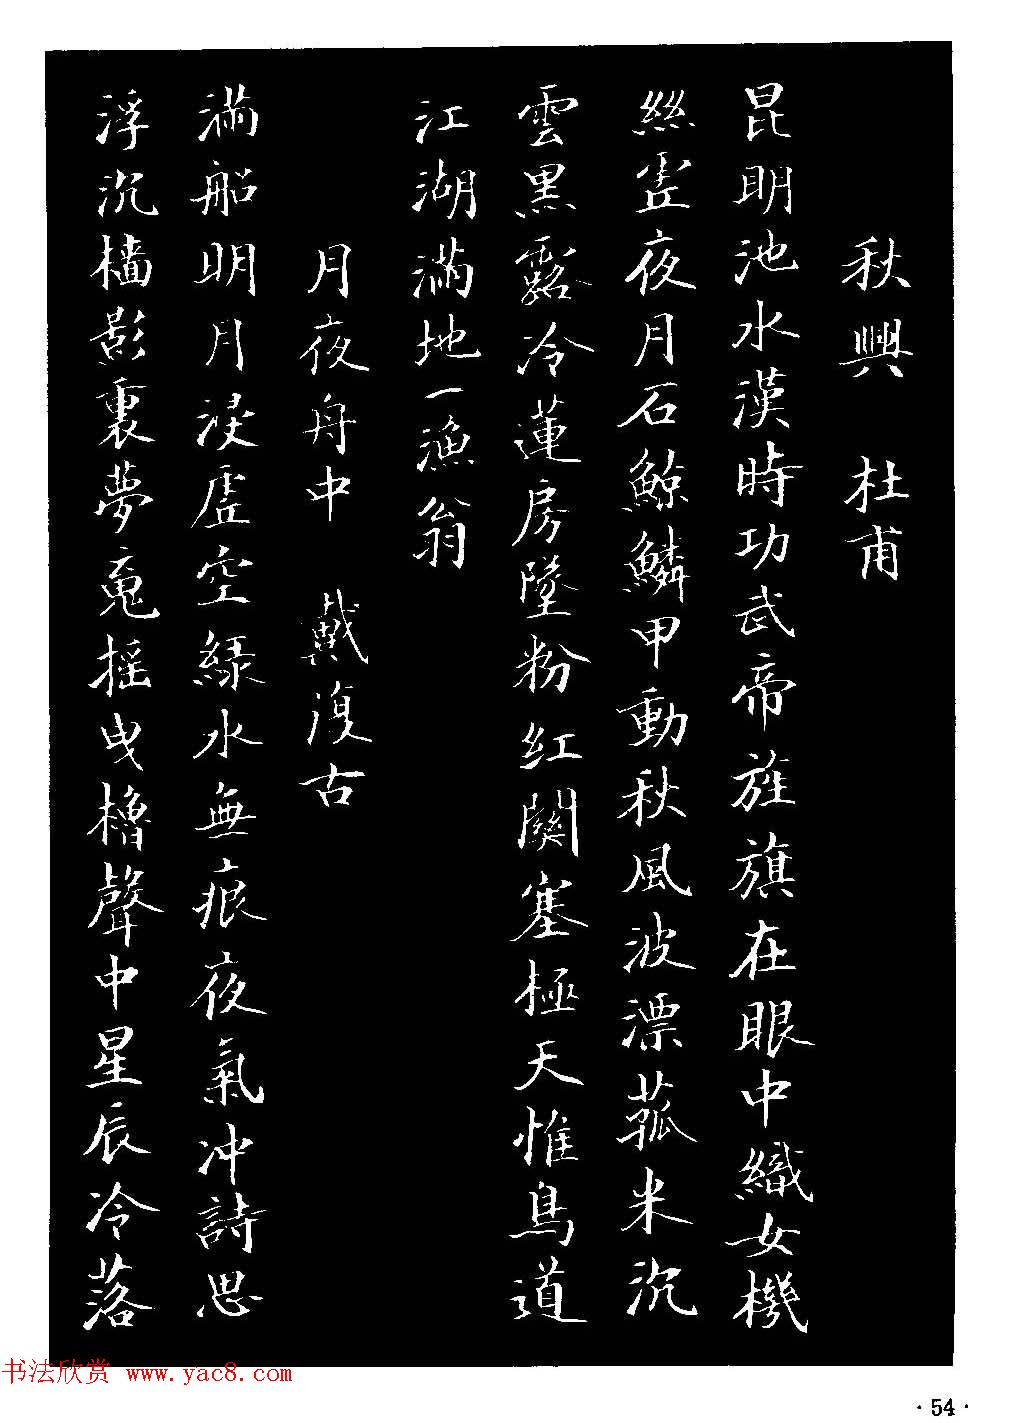 秋興 杜甫
昆明池水漢時功武帝旌旗在眼中織女機
絲虛夜月石鯨鱗甲動秋風波漂菰米沉
雲黑露冷蓮房墜粉紅關塞極天惟鳥道
江湖滿地一漁翁
月夜舟中 戴復古
滿船明月浸虛空綠水無痕夜氣冲詩思
浮沉檣影裏夢魂摇曳櫓聲中星辰冷落
书法欣赏 www.yac8.com
·54·